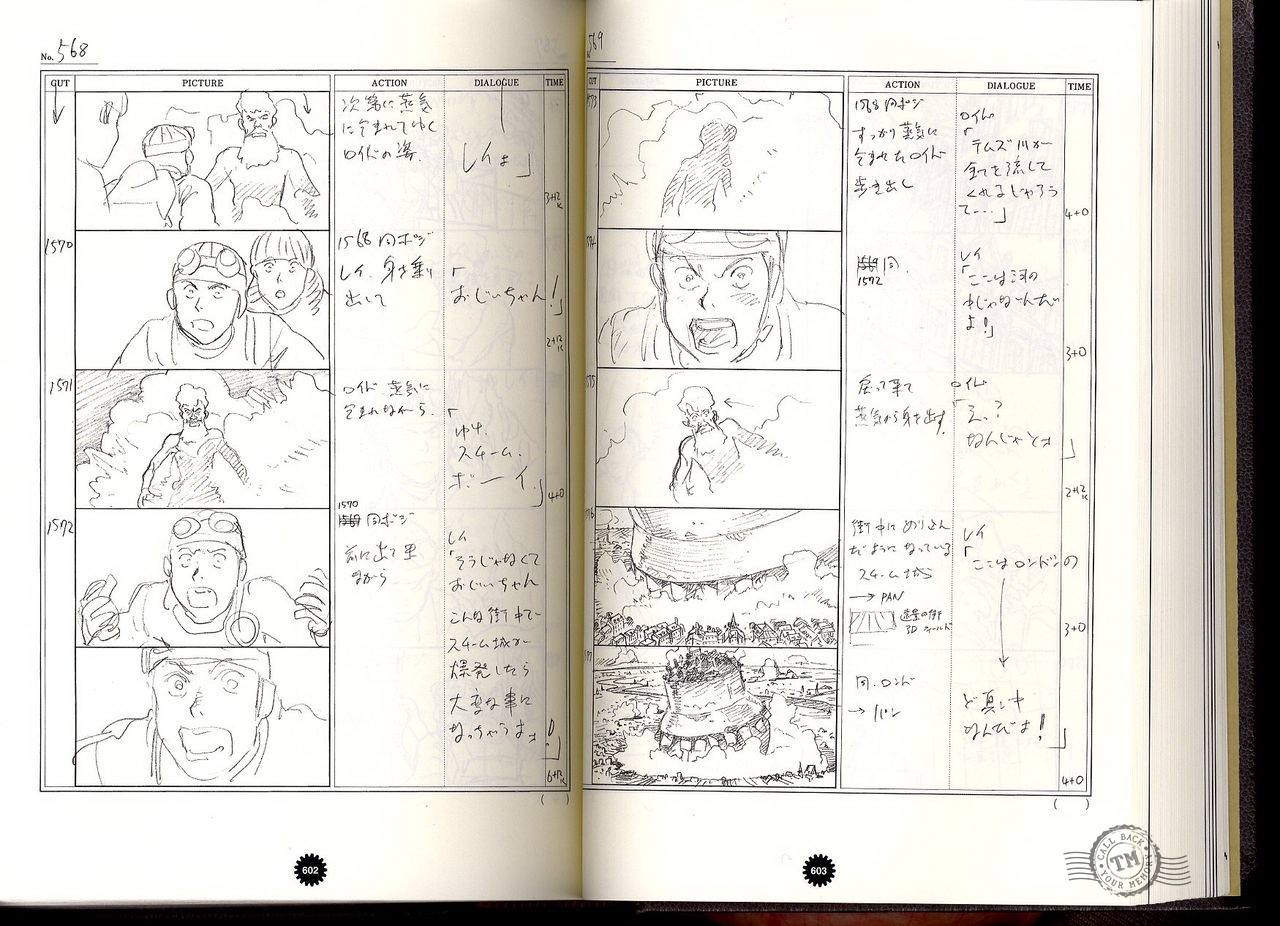 No. 568
CUT PICTURE ACTION DIALOGUE TIME
次第に蒸気
に包まれてゆく
ロイドの姿.
しィょ」
3+12K
1570
1568 同ポジ
レイ. 身を乗り
出して
「
おじいちゃん!」
2+12K
1571
ロイド 蒸気に
包まれながら.
「
ゆけ.
スチーム.
ボーイ.」
4+0
1572
1570
同ポジ
前に出て来
ながら
レイ
「そうじゃなくて
おじいちゃん
こんな街中で
スチーム城が
爆発したら
大変な事に
なっちゃうよ
」
6+12K
( )
602
569
CUT PICTURE ACTION DIALOGUE TIME
1573
1568 同ポジ
すっかり蒸気に
包まれたロイド
歩き出し
ロイド
「
テムズ川が
全てを流して
くれるじゃろう
て…」
4+0
1574
1569 同.
1572
レイ
「ここは河の
中じゃないんだ
よ!」
3+0
1575
戻って来て
蒸気から身を出す.
ロイド
「えっ?
なんじゃとぉ
」
2+12K
1576
街中にめりこん
だようになっている
スチーム城
→ PAN
遠景の街
3Dフィールド
レイ
「
ここはロンドンの
3+0
1577
同. ロンドン
→ パン
ど真ン中
なんだよ!
」
4+0
( )
603
CALL BACK
TM
YOUR MEMORY